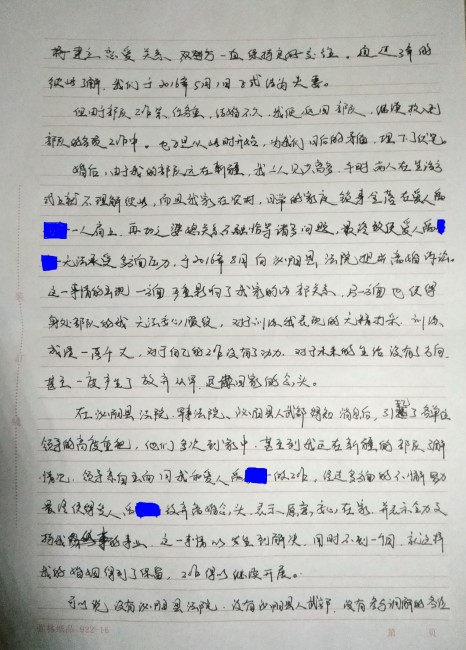 将建立恋爱关系，双方一直保持良好交往。通过3年的
彼此了解，我们于2016年5月1日正式结为夫妻。
但由于部队工作等、任务重，结婚不久，我便返回部队，继续投入到
部队的各项工作中。也正是从此时开始，为我们日后的矛盾，埋下了伏笔。
婚后，由于我的部队远在新疆，我二人见少离多，平时两人在生活方
式上就不理解彼此，而且我家在农村，日常的家庭
一人肩上，再加之婆媳关系不融洽等诸多问题，最终致使爱人
无法承受多方面压力，于2016年8月向泌阳县法院提出离婚诉讼。
这一事情的出现一方面严重影响了我家的内部关系，另一方面也使得
身处部队的我无法安心服役，对于训练我表现的无精打采，训练
成绩一落千丈，对于自己的工作没有了动力，对于未来的生活没有了方向，
甚至一度产生了放弃从军，退伍回家的念头。
在泌阳县法院、军事法院、泌阳县人武部得知消息后，引起了各单位
领导的高度重视，他们多次到家中，甚至到我远在新疆的部队了解
情况，给我和爱人做工作，经过多方面的不懈努力
最终使得爱人放弃离婚念头，表示愿意安心在家，并表示全力支
持我的事业，这一事情从发生到解决，用时不到一个月，就这样
我的婚姻得到了保留，工作得以继续开展。
可以说，没有泌阳县法院，没有泌阳县人武部，没有参与调解的各位
922-16
第 页